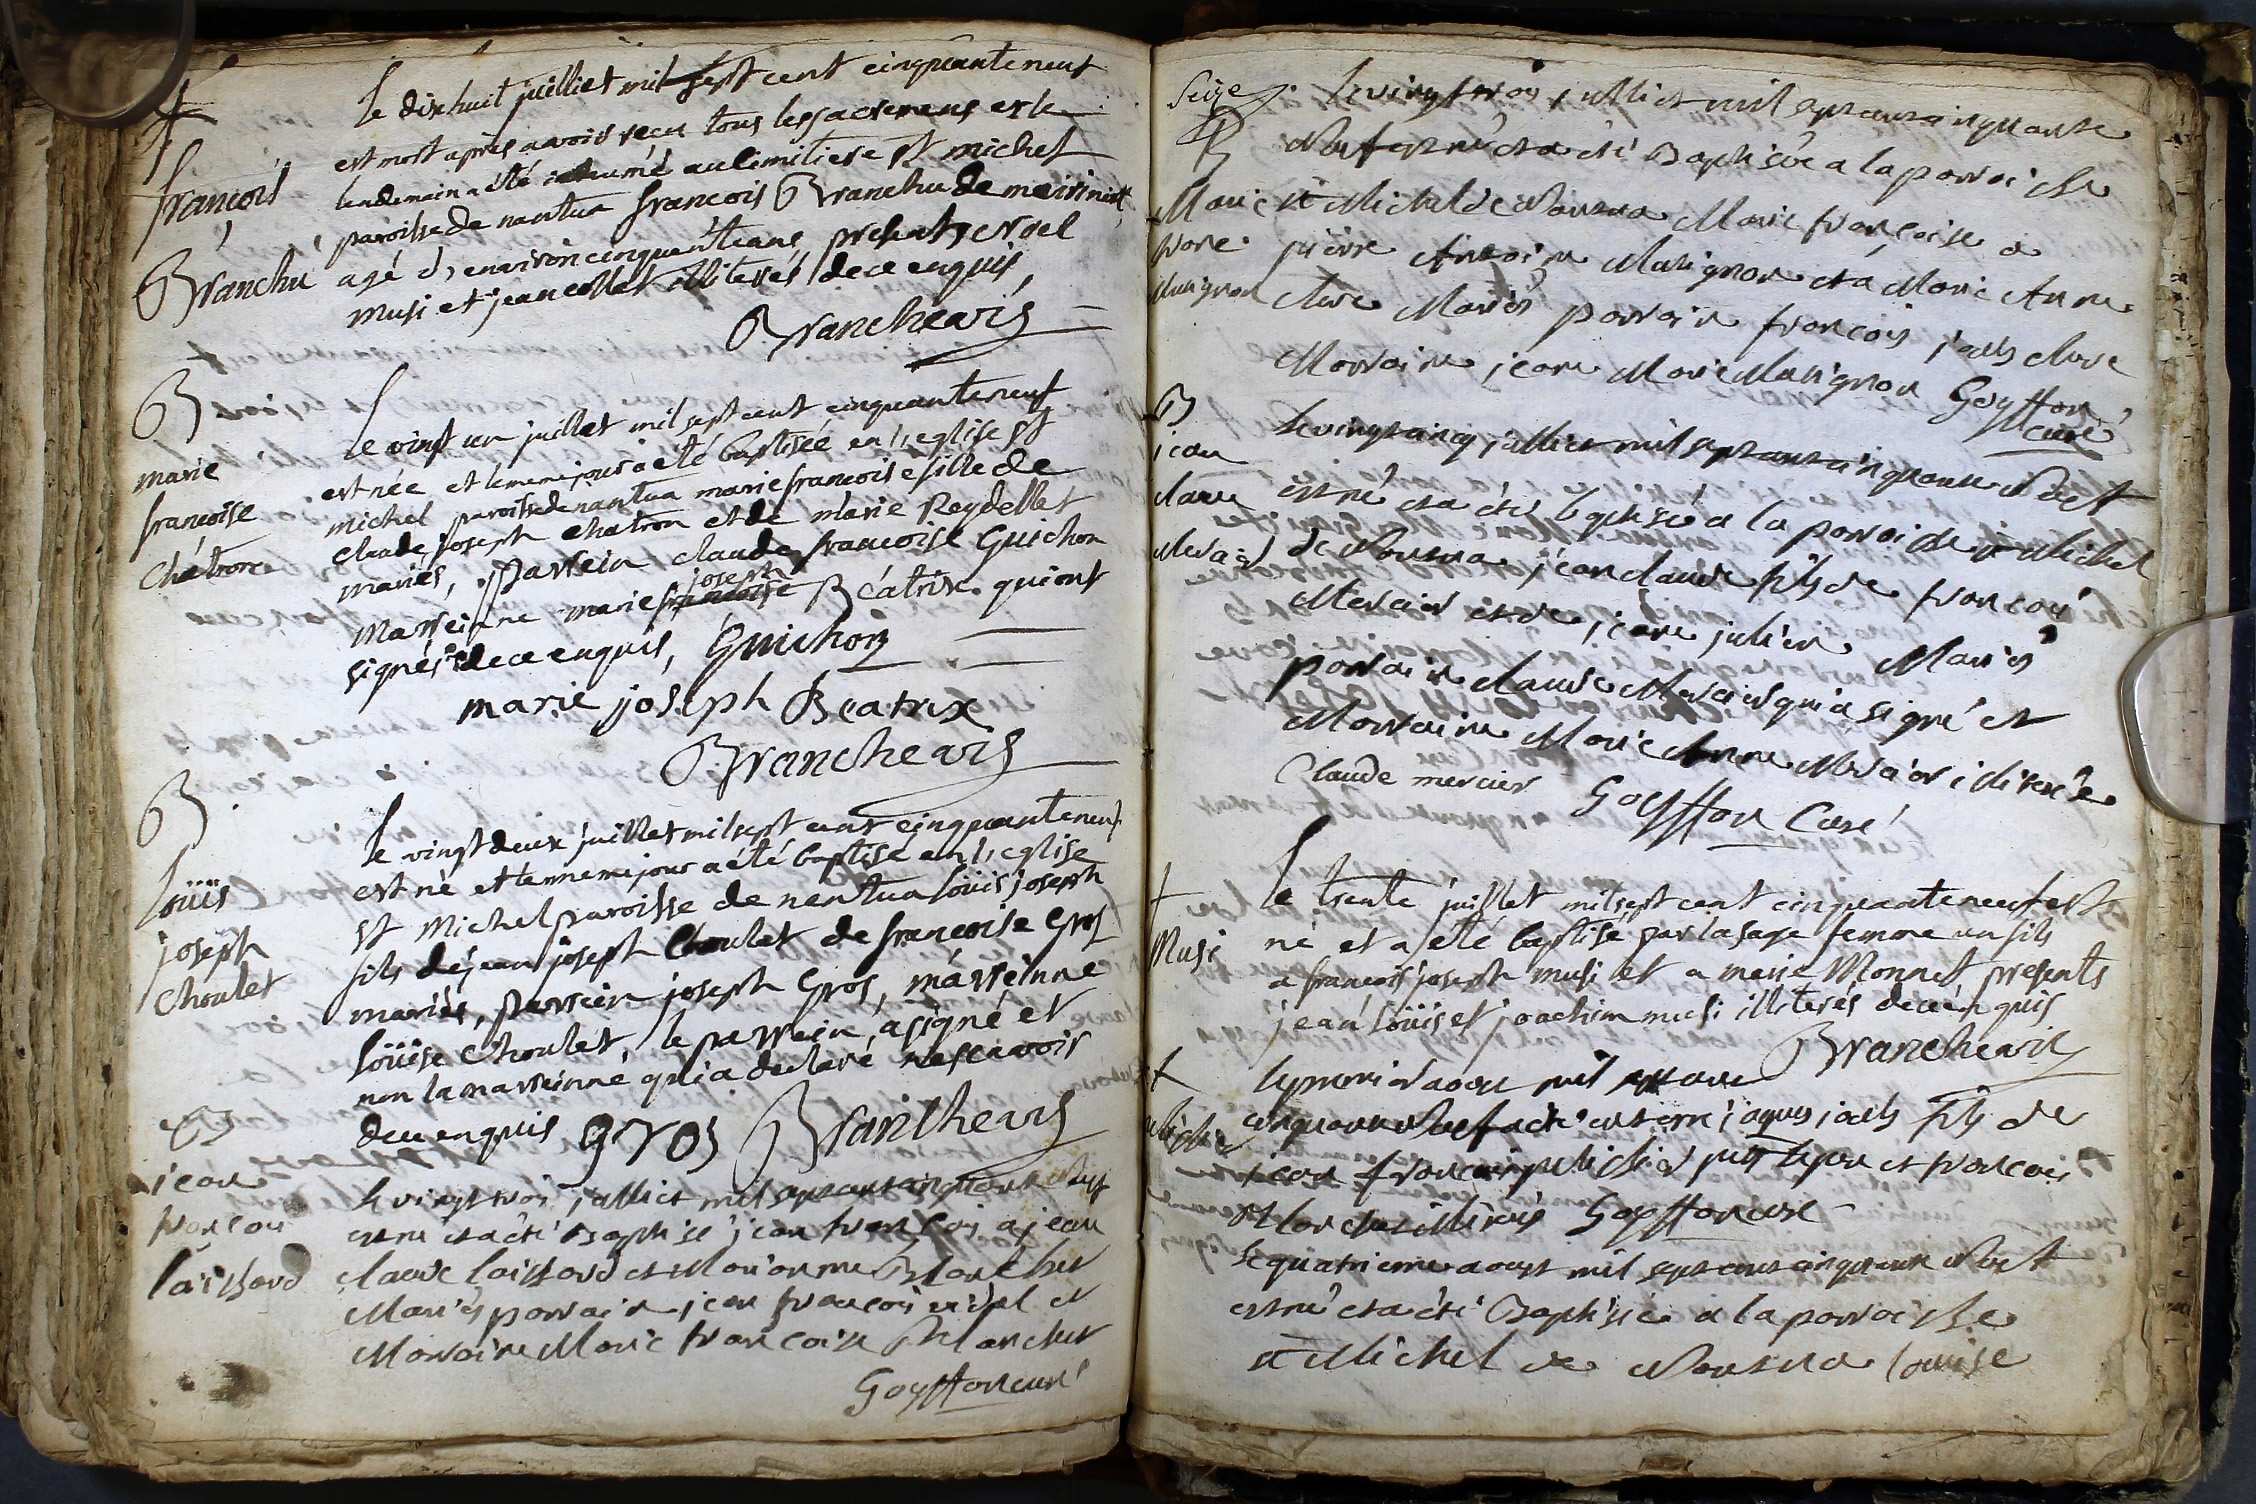 †
françois
Branchu
le dix huit juilliet mil sept cent cinquante neuf
est mort après avoir reçu tous les sacremens et le
lendemain a été inhumé au cimitiere st michel
paroisse de nantua francois Branchu de
agé d'environ cinquante ans, presents noel
musi et jean collet illiterés de ce enquis,
Branche vic
B
marie
francoise
Chatron
le vingt un juillet mil sept cent cinquante neuf
est née et le meme jour a été baptisée en l'eglise st
michel paroisse de nantua marie francoise fille de
claude joseph chatron et de marie Reydellet
mariés, parrein claude francoise Guichon
joseph
marreinne marie francoise Béatrix qui ont
signés de ce enquis, Guichon
marie joseph Beatrix
Branche vic
B
loüis
joseph
Choulet
le vingt deux juillet mil sept cent cinquante neuf
est né et le meme jour a été baptisé en l'eglise
st Michel paroisse de nantua loüis joseph
fils de jean joseph Choulet de francoise Gros
mariés, parrein joseph Gros, marreinne
loüise Choulet, le parrein a signé et
non la marreinne qui a declaré ne scavoir
de ce enquis gros Branche vic
B
jean
francois
laissard
le vingt trois juilliet mil sept cent cinquante neuf
est né et a été Baptisé jean francois a jean
claude laissard et Marianne Blanchet
Mariés parrain jean francois et
Marraine Marie francoise Blanchet
Goyffon curé
Seize
B
Marie
Malignon
le vingt trois juilliet mil sept cent cinquante
Neuf est née et a été Baptisée a la parroisse
st Michel de Nantua Marie françoise a
pierre Antoine Malignon et a Marie Anne
Mariés parrain francois
Marraine jeane Marie Malignon Goyffon
curé
B
jean
claude
Mercier
le vingt cinq juilliet mil sept cent cinquante Neuf
est né et a été Baptisé a la parroisse st Michel
de Nantua jean claude fils de francois
Mercier et de jeane julien Mariés
parrain claude Mercier qui a signé et
Marraine Marie Anne Mercier iliterée
Claude mercier Goyffon Curé
†
Musi
le trente juillet mil sept cent cinquante neuf est
né et a été baptisé par la sage femme un fils
a françois joseph musi et a marie Monnet, presents
jean loüis et joachim musi illiterés de ce enquis
Branche vic
†
le premier aout mil sept cent
cinquante Neuf a été enterré fils de
jean francois et francois
Goyffon curé
le quatrieme aout mil sept cent cinquante Neuf
est née et a été Baptisée a la parroisse
st Michel de Nantua louise